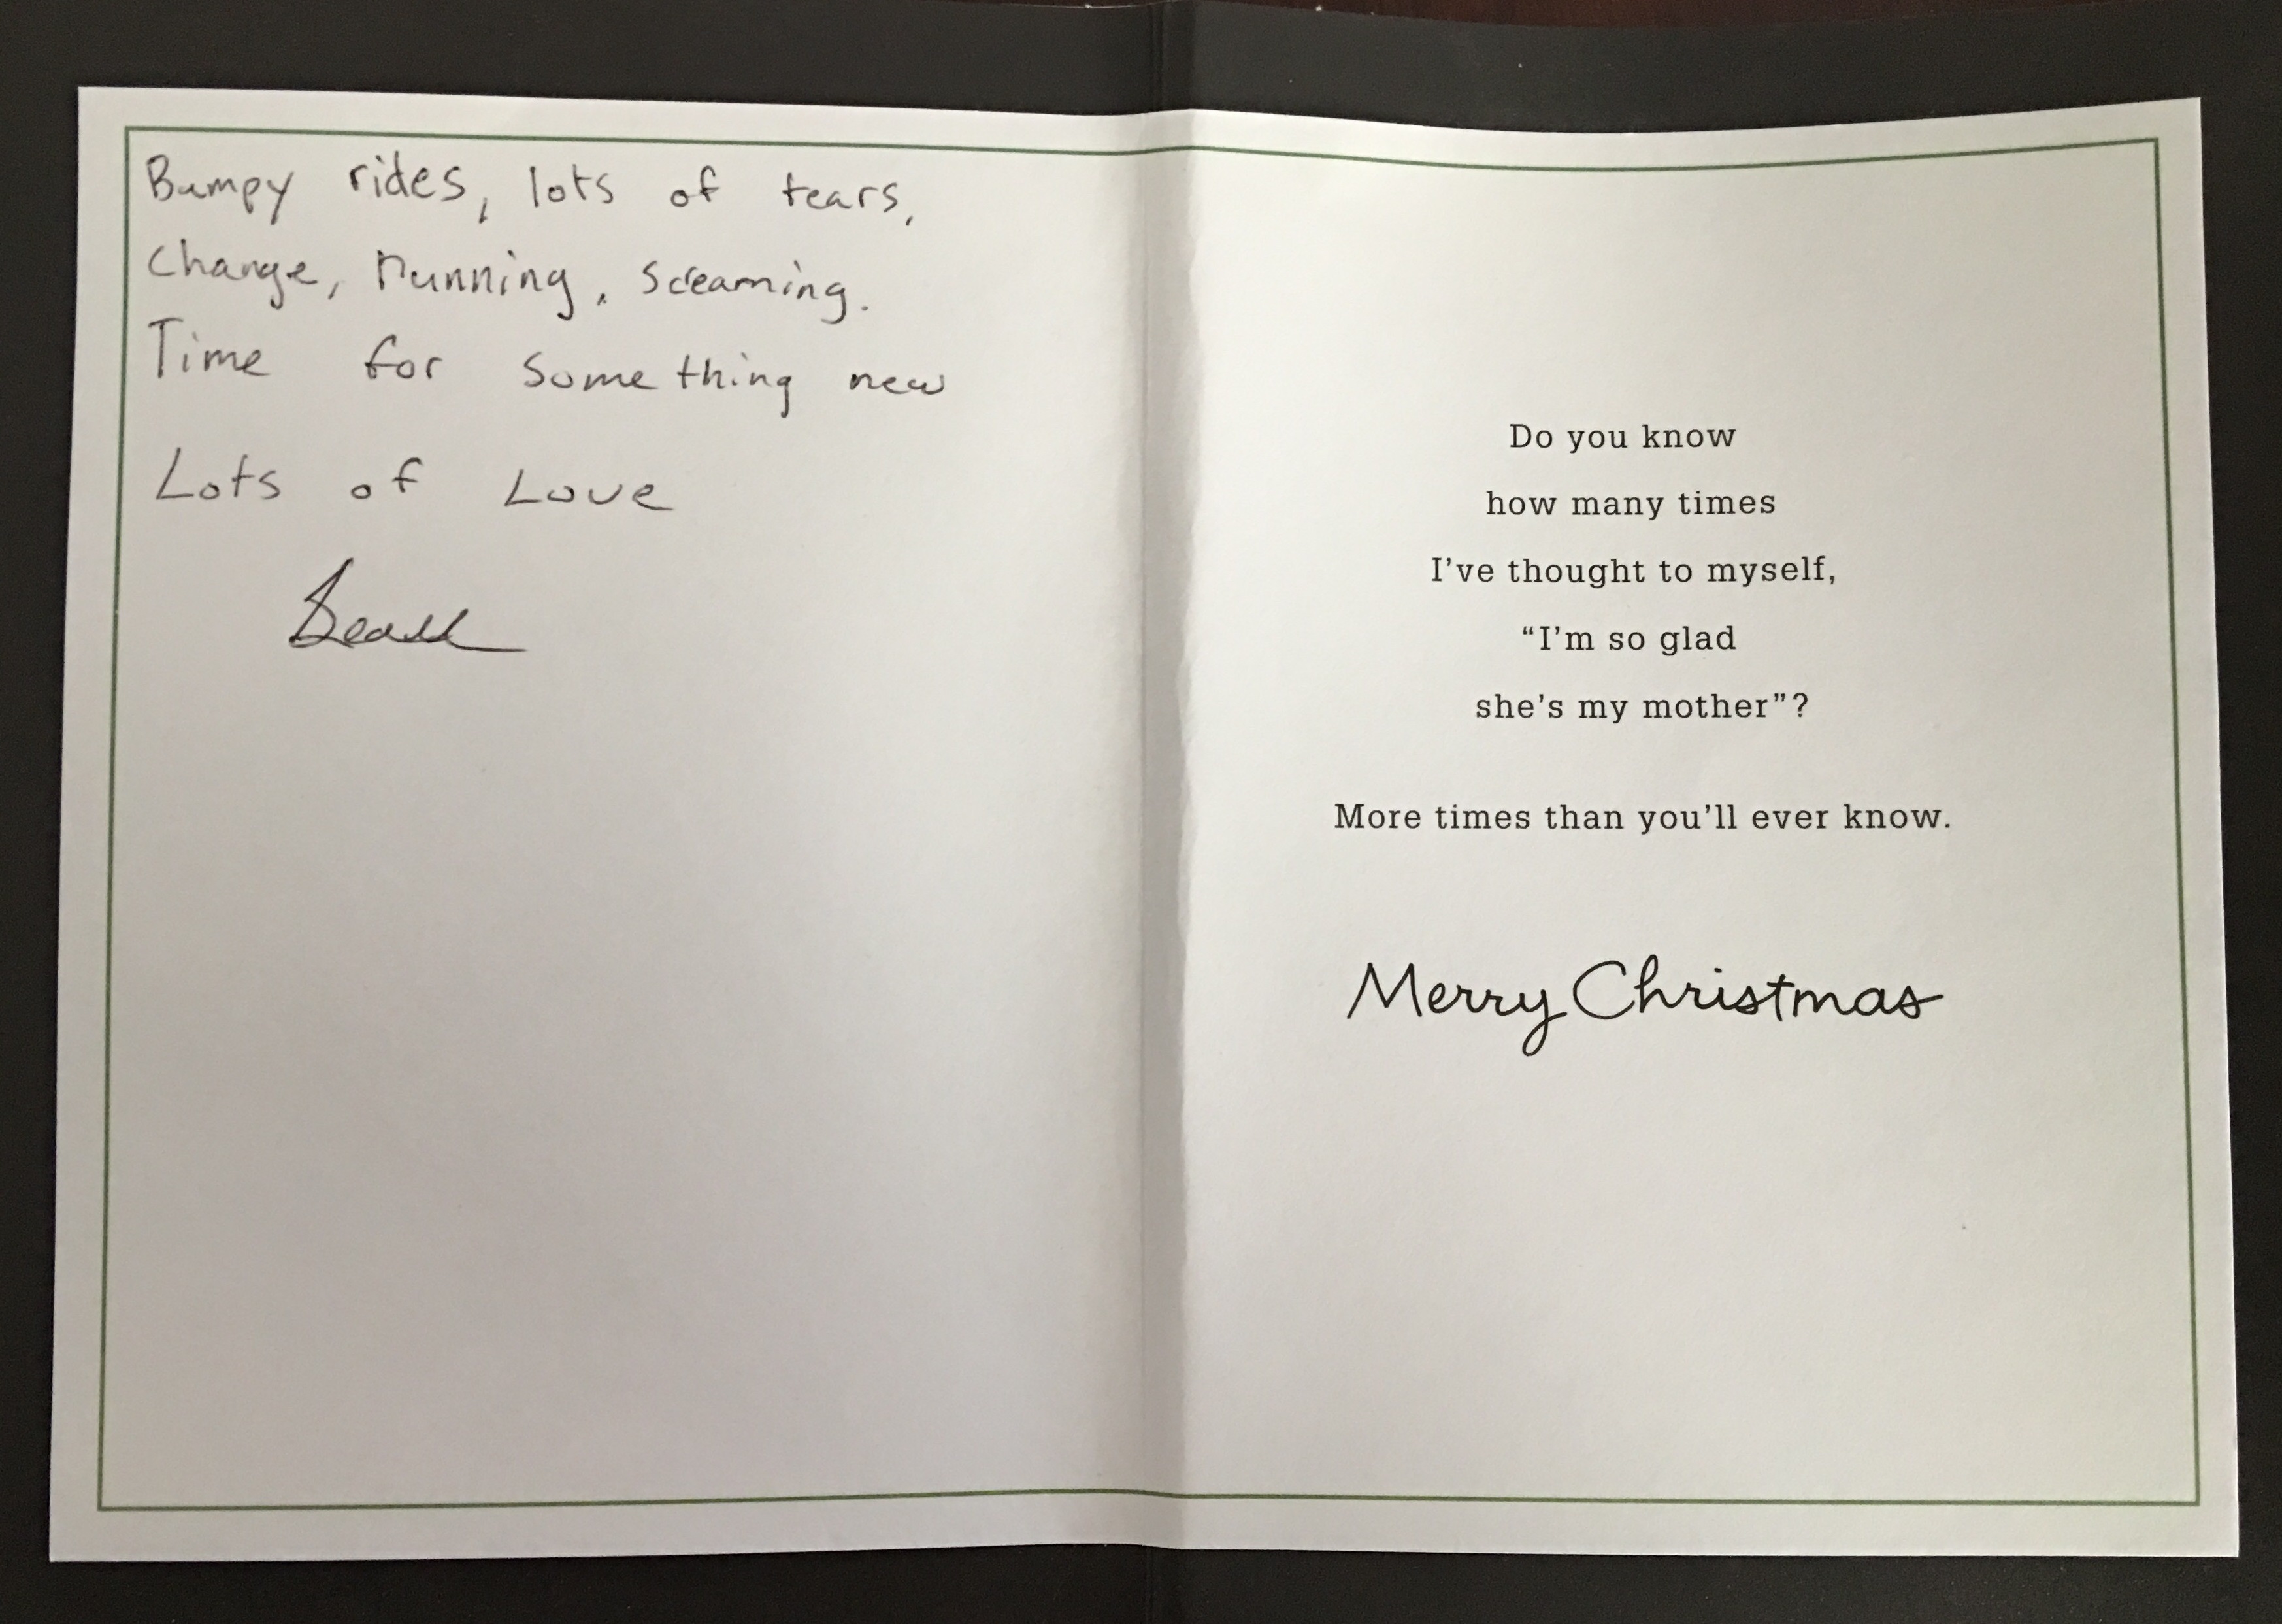 Bumpy rides, lots of tears,
Change, running, screaming.
Time for something new
Lots of Love
Do you know
how many times
I've thought to myself,
“I'm so glad
she's my mother”?
More times than you'll ever know.
Merry Christmas